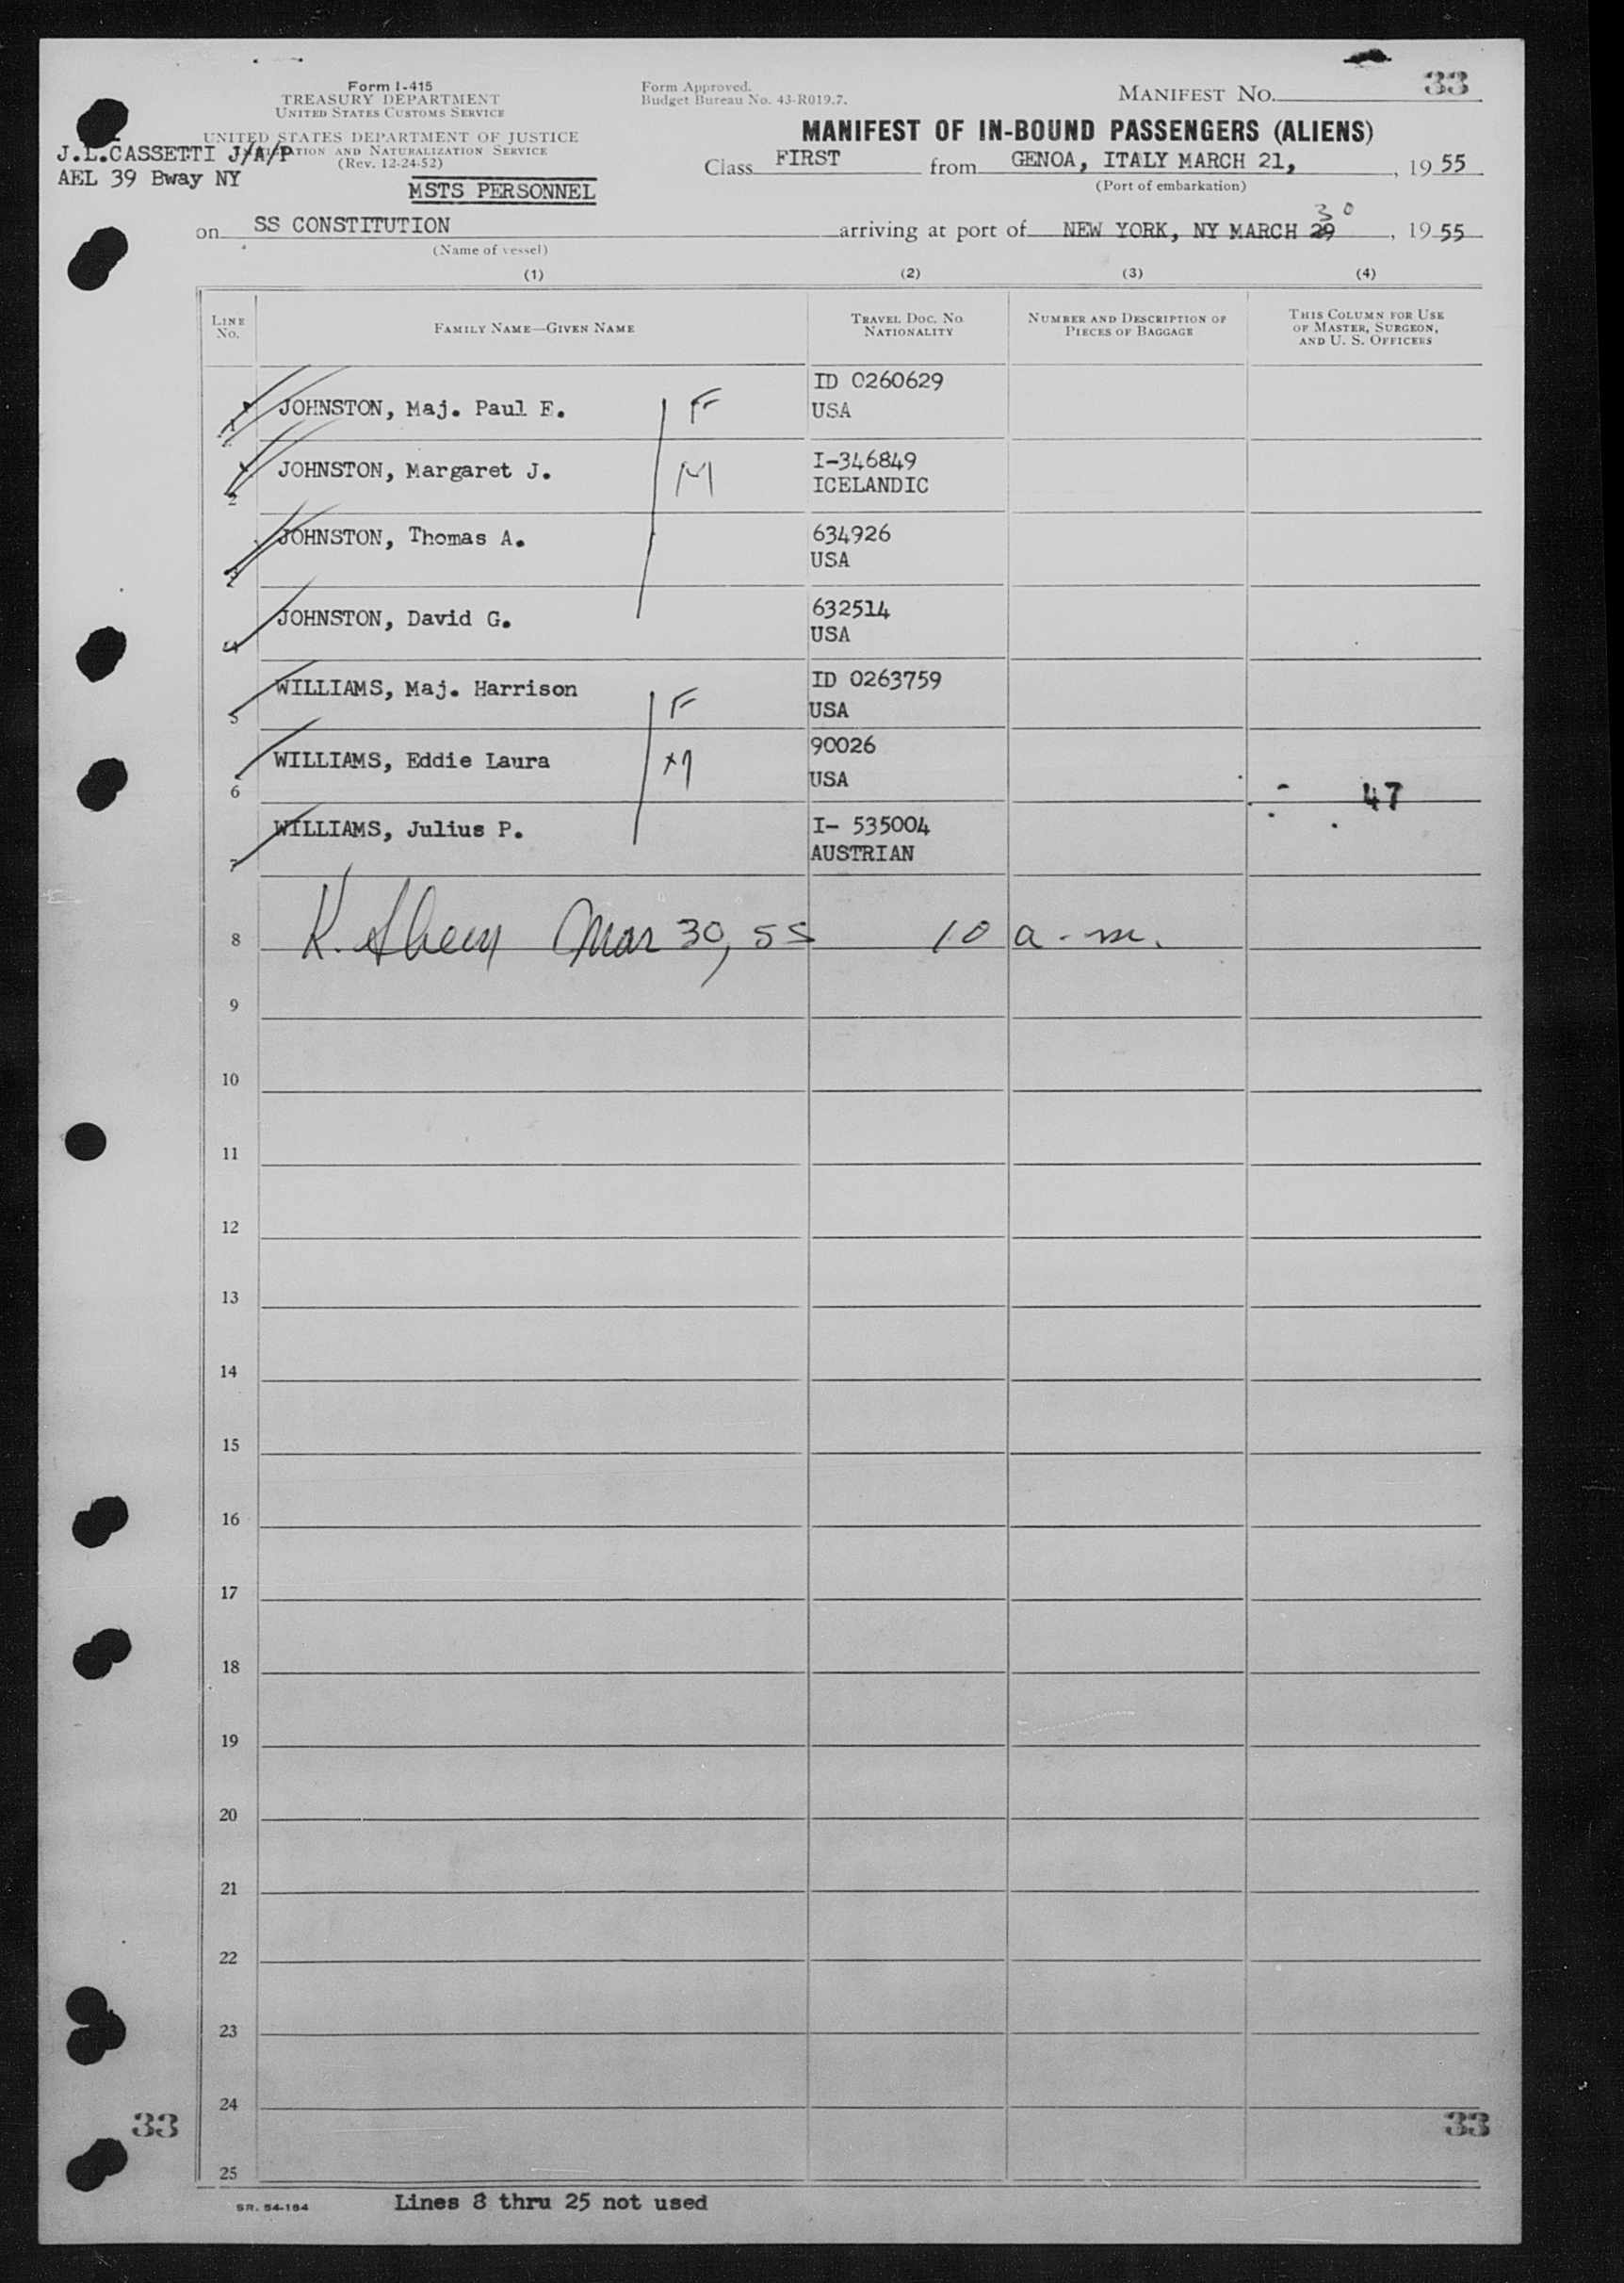 Form I-415
TREASURY DEPARTMENT
UNITED STATES CUSTOMS SERVICE
UNITED STATES DEPARTMENT OF JUSTICE
J.L.CASSETTI J/A/P
AND NATURALIZATION SERVICE
(Rev. 12-24-52)
AEL 39 Bway NY
MSTS PERSONNEL
Form Approved.
Budget Bureau No. 43-R019.7.
MANIFEST NO. 33
MANIFEST OF IN-BOUND PASSENGERS (ALIENS)
Class FIRST from GENOA, ITALY MARCH 21, , 1955
(Port of embarkation)
on SS CONSTITUTION arriving at port of NEW YORK, NY MARCH 29 30 , 1955
(Name of vessel)
(1) (2) (3) (4)
LINE NO. FAMILY NAME—GIVEN NAME TRAVEL DOC. NO. NATIONALITY NUMBER AND DESCRIPTION OF PIECES OF BAGGAGE THIS COLUMN FOR USE OF MASTER, SURGEON, AND U. S. OFFICERS
1 JOHNSTON, Maj. Paul E. F ID 0260629 USA
2 JOHNSTON, Margaret J. M I-346849 ICELANDIC
3 JOHNSTON, Thomas A. 634926 USA
4 JOHNSTON, David G. 632514 USA
5 WILLIAMS, Maj. Harrison F ID 0263759 USA
6 WILLIAMS, Eddie Laura M 90026 USA 47
7 WILLIAMS, Julius P. I- 535004 AUSTRIAN
8 K. Mar 30, 55 10 a.m.
9
10
11
12
13
14
15
16
17
18
19
20
21
22
23
24
33 33
25
SR. 54-184 Lines 8 thru 25 not used